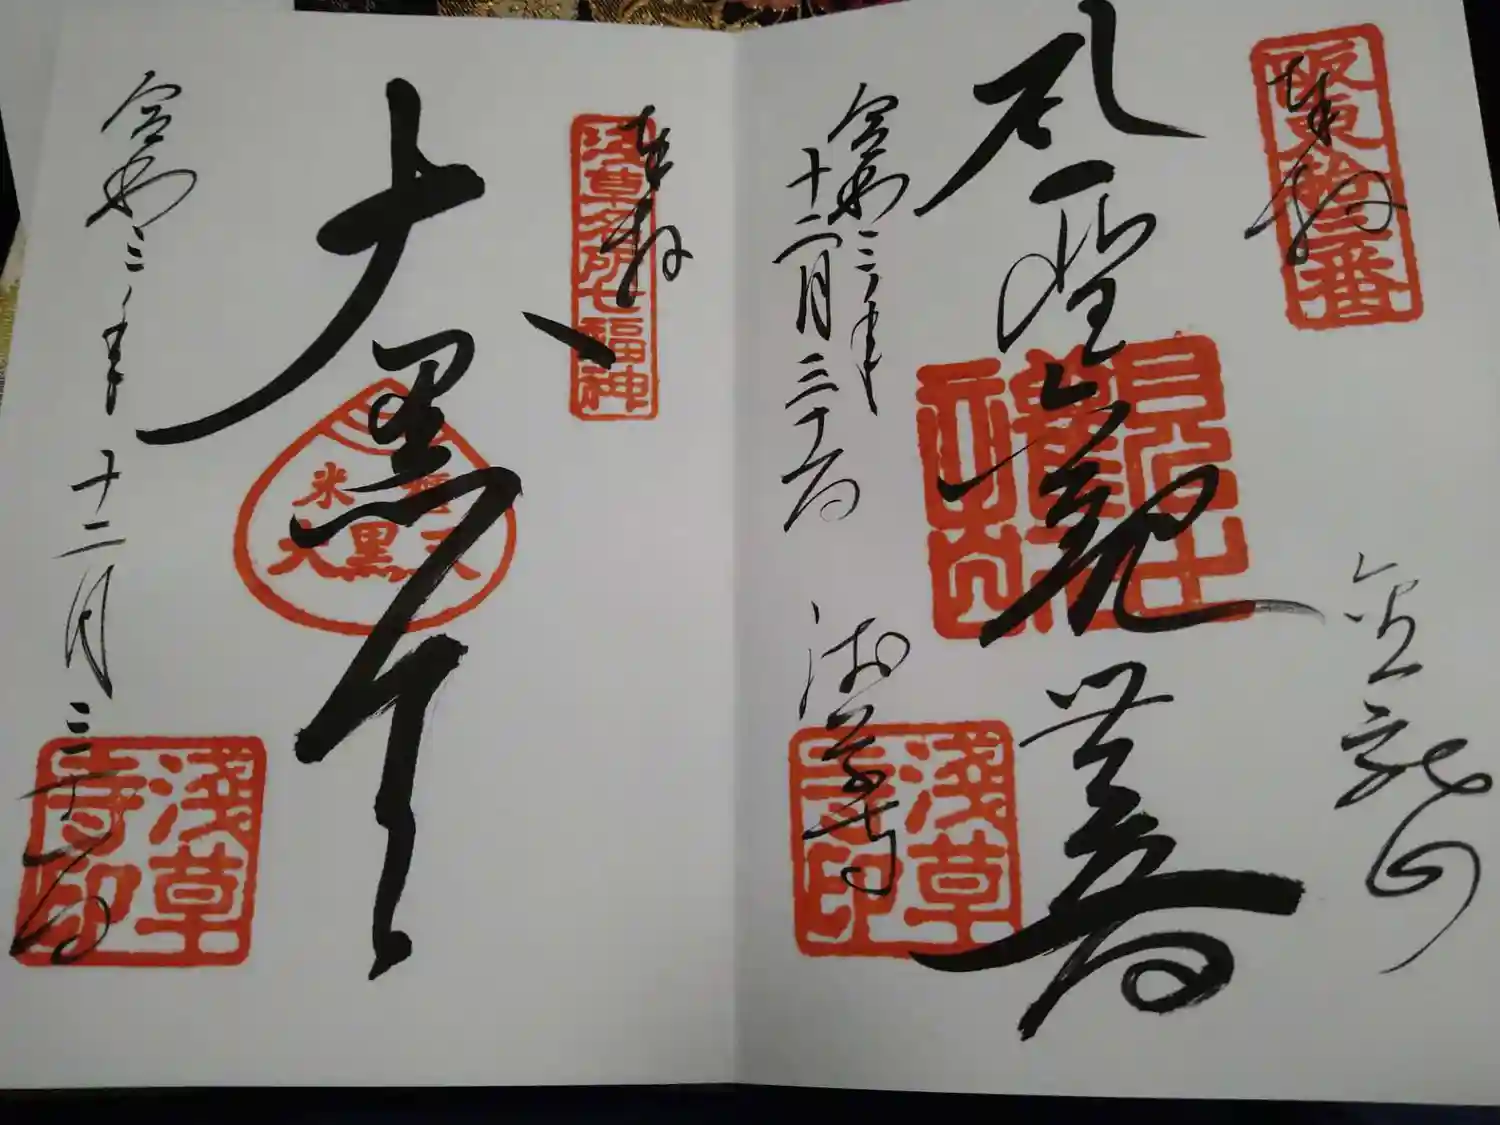 奉拝
坂東拾三番
金龍山
聖観世音
令和三年
十二月三十日
浅草寺
淺草寺印
奉拝
浅草名所七福神
大黒天
米櫃
大黒天
令和三年十二月三十日
淺草寺印